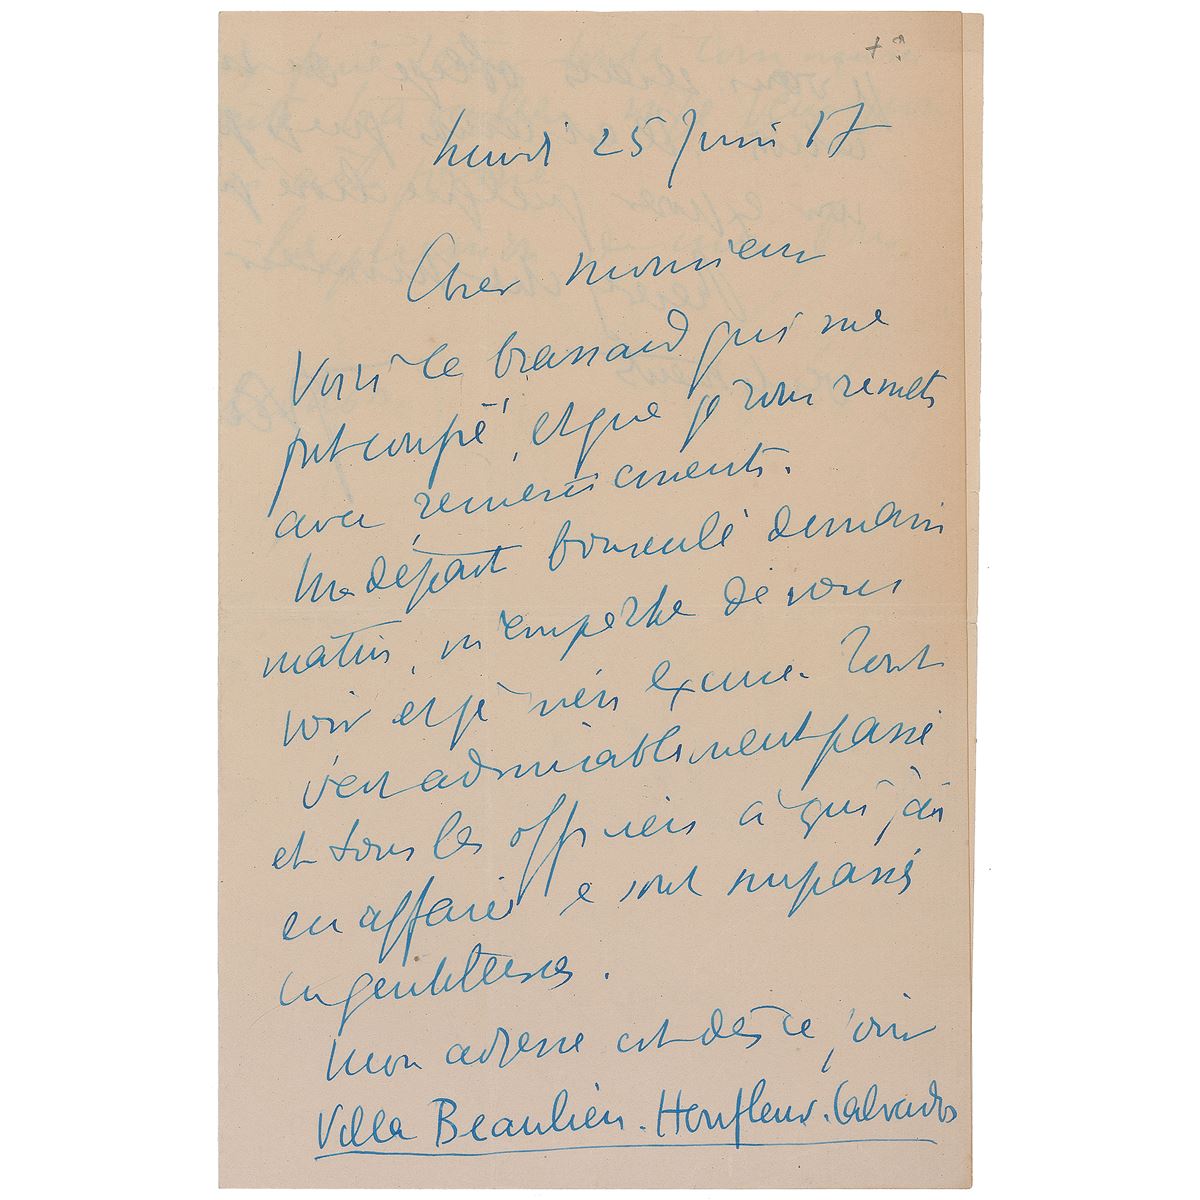 Lundi 25 Juin 17
Cher Monsieur
Voici le brassard qui me
fut confié, et que je vous remets
avec remerciements.
Mon départ bousculé demain
matin, m'empêche de vous
voir et je m'en excuse. Tout
s'est admirablement passé
et tous les officiers à qui j'ai
eu affaire se sont surpassés
en gentillesses.
Mon adresse est dès ce jour
Villa Beaulieu. Honfleur. Calvados